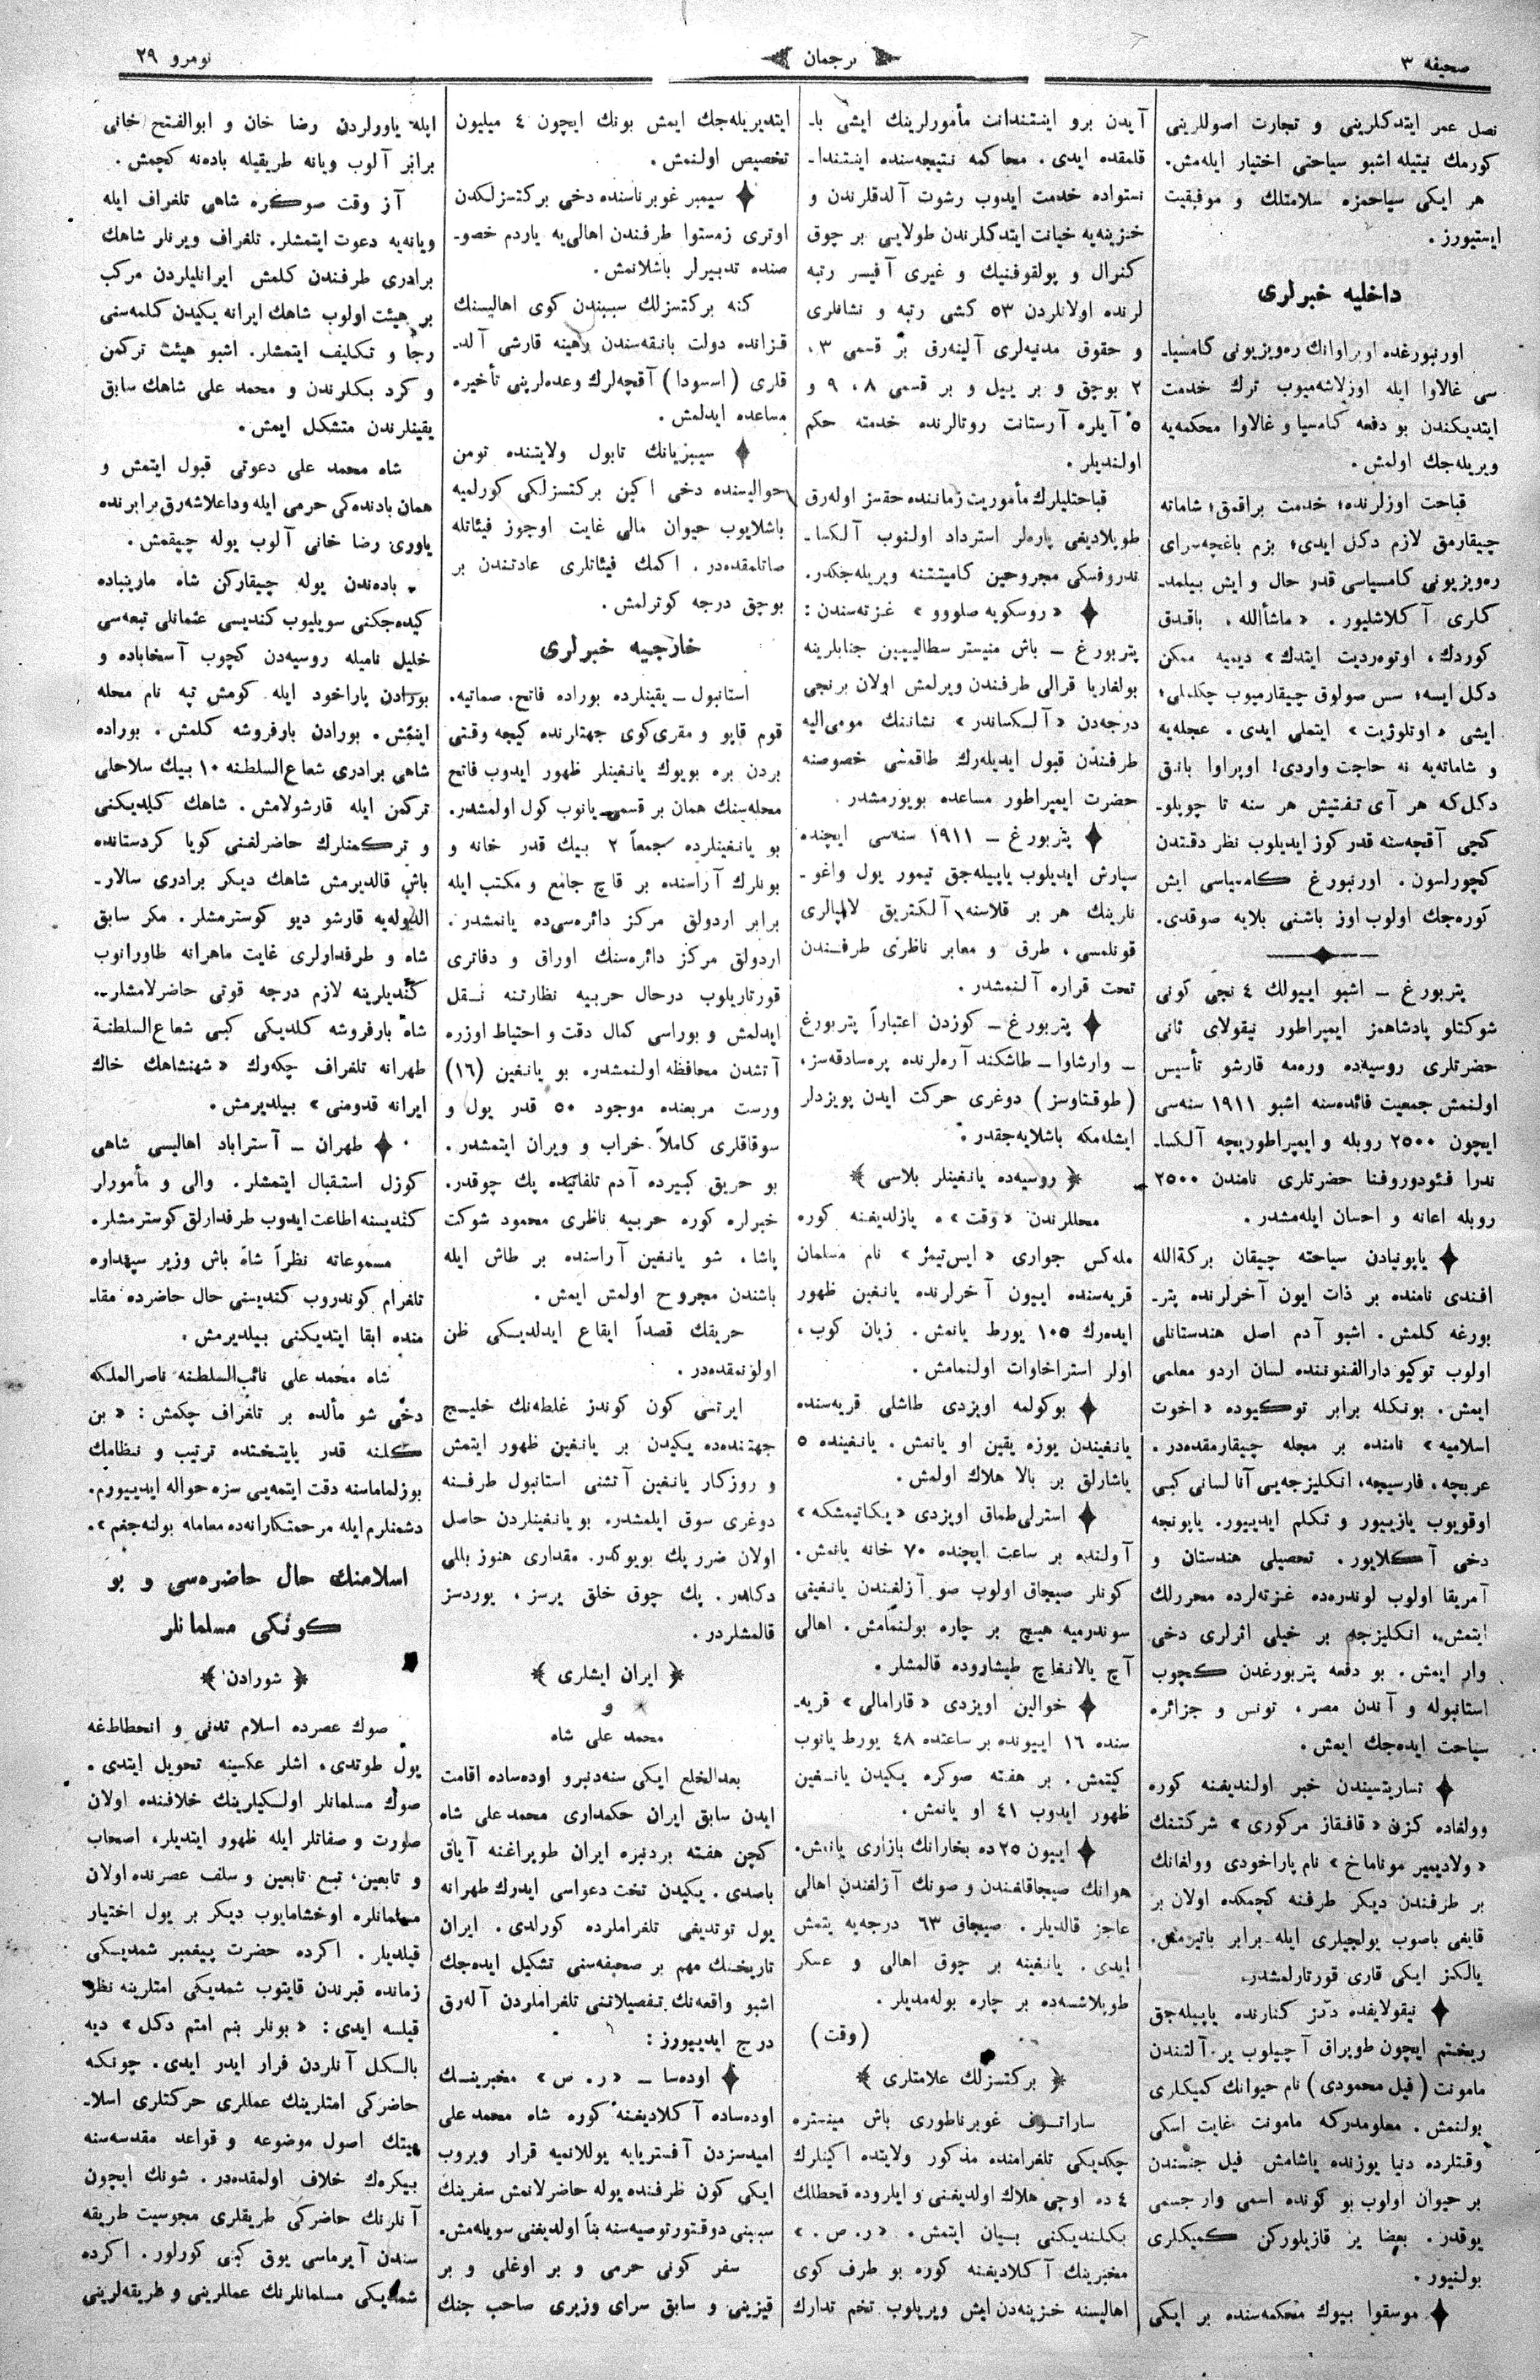 صحیفه ۳
ترجمان
نومرو ۲۹
نصل عمر ایتدکلرینی و تجارت اصوللرینی
کورمك نیتیله اشبو سیاحتی اختیار ایله‌مش.
هر ایکی سیاحمزه سلامتلك و موفقیت
ایستیورز.
داخلیه خبرلری
اورنبورغده اوپراوانك ره‌ویزیونی کامسیا-
سی غالاوا ایله اوزلاشه‌میوب ترك خدمت
ایتدیکندن بو دفعه کامسیا و غالاوا محکمه‌یه
ویریله‌جك اولمش.
قباحت اوزلرنده؛ خدمت براقمق؛ شاماته
چیقارمق لازم دکل ایدی؛ بزم باغچه‌سرای
ره‌ویزیونی کامسیاسی قدر حال و ایش بیلمد-
کلری آکلاشلیور. «ماشأالله، باقدق
کوردك، اوتوه‌ردیت ایتدك» دیمیه ممکن
دکل ایسه؛ سس صولوق چیقارمیوب چکلملی؛
ایشی «اوتلوژیت» ایتملی ایدی. عجله‌یه
و شاماته‌یه نه حاجت واردی! اوپراوا بانق
دکل‌که هر آی تفتیش هر سنه تا چوپلو-
کچی آقچه‌سنه قدر کوز ایدیلوب نظر دقتدن
کچورلسون. اورنبورغ کامسیاسی ایش
کوره‌جك اولوب اوز باشنی بلایه صوقدی.
پتربورغ – اشبو اییولك ٤ نجی کونی
شوکتلو پادشاهمز ایمپراطور نیقولای ثانی
حضرتلری روسیه‌ده وره‌مه قارشو تأسیس
اولنمش جمعیت فائده‌سنه اشبو ۱۹۱۱ سنه‌سی
ایچون ۲۵۰۰ روبله و ایمپراطوریچه آلکسا-
ندرا فئودوروفنا حضرتلری نامندن ۲۵۰۰
روبله اعانه و احسان ایله‌مشدر.
یاپونیادن سیاحته چیقان برکةالله
افندی نامنده بر ذات ایون آخرلرنده پتر-
بورغه کلمش. اشبو آدم اصل هندستانلی
اولوب توکیو دارالفنوننده لسان اردو معلمی
ایمش. بونکله برابر توکیوده «اخوت
اسلامیه» نامنده بر مجله چیقارمقده‌در.
عربچه، فارسیچه، انکلیزجه‌یی آنا لسانی کبی
اوقویوب یازییور و تکلم ایدییور. یاپونجه
دخی آکلایور. تحصیلی هندستان و
آمریقا اولوب لوندره‌ده غزته‌لرده محررلك
ایتمش، انکلیزجه بر خیلی اثرلری دخی
وار ایمش. بو دفعه پتربورغدن کچوب
استانبوله و آندن مصر، تونس و جزائره
سیاحت ایده‌جك ایمش.
تساریتسیندن خبر اولندیغنه کوره
وولغاده کزن «قافقاز مرکوری» شرکتنك
«ولادیمیر موناماخ» نام پاراخودی وولغانك
بر طرفندن دیکر طرفنه کچمکده اولان بر
قایغی باصوب یولجیلری ایله برابر باتیرمش.
یالکز ایکی قاری قورتارلمشدر.
نیقولایفده دکز کنارنده یاپیله‌جق
ریختم ایچون طوپراق آچیلوب یر آلتندن
مامونت (فیل محمودی) نام حیوانك کمیکلری
بولنمش. معلومدرکه مامونت غایت اسکی
وقتلرده دنیا یوزنده یاشامش فیل جنسندن
بر حیوان اولوب بو کونده اسمی وار جسمی
یوقدر. بعضا یر قازیلورکن کمیکلری
بولنیور.
موسقوا بیوك محکمه‌سنده بر ایکی
آیدن برو اینتندانت مأمورلرینك ایشی با-
قلمقده ایدی. محاکمه نتیجه‌سنده اینتندا-
نستواده خدمت ایدوب رشوت آلدقلرندن و
خزینه‌یه خیانت ایتدکلرندن طولایی بر چوق
کنرال و پولقوفنیك و غیری آفیسر رتبه
لرنده اولانلردن ۵۳ کشی رتبه و نشانلری
و حقوق مدنیه‌لری آلینه‌رق بر قسمی ۳،
۲ بوچق و بر ییل و بر قسمی ۸، ۹ و
۵ آیلره آرستانت روتالرنده خدمته حکم
اولندیلر.
قباحتلیلرك مأموریت زماننده حقسز اوله‌رق
طوپلادیغی پاره‌لر استرداد اولنوب آلکسا-
ندروفسکی مجروحین کامیتتنه ویریله‌جکدر.
«روسکویه صلووو» غزته‌سندن:
پتربورغ – باش منیستر سطالیپین جنابلرینه
بولغاریا قرالی طرفندن ویرلمش اولان برنجی
درجه‌دن «آلکساندر» نشاننك مومی‌الیه
طرفندن قبول ایدیله‌رك طاقمشی خصوصنه
حضرت ایمپراطور مساعده بویورمشدر.
پتربورغ – ۱۹۱۱ سنه‌سی ایچنده
سپارش ایدیلوب یاپیله‌جق تیمور یول واغو-
نلرینك هر بر قلاسنه آلکتریق لامپالری
قونلمسی، طرق و معابر ناظری طرفندن
تحت قراره آلنمشدر.
پتربورغ – کوزدن اعتباراً پتربورغ
– وارشاوا – طاشکند آره‌لرنده پره‌سادقه‌سز،
(طوقتاوسز) دوغری حرکت ایدن پویزدلر
ایشله‌مکه باشلایه‌جقدر.
﴿ روسیه‌ده یانغینلر بلاسی ﴾
محللرندن «وقت» ه یازلدیغنه کوره
مله‌کس جواری «ایس‌تیمز» نام مسلمان
قریه‌سنده اییون آخرلرنده یانغین ظهور
ایده‌رك ۱۰۵ یورط یانمش. زیان کوب،
اولر استراخاوات اولنمامش.
بوکولمه اویزدی طاشلی قریه‌سنده
یانغیندن یوزه یقین او یانمش. یانغینده ۵
یاشارلق بر بالا هلاك اولمش.
استرلی‌طماق اویزدی «یکاتیمشکه»
آولنده بر ساعت ایچنده ۷۰ خانه یانمش.
کونلر صیجاق اولوب صو آزلغندن یانغینی
سوندرمیه هیچ بر چاره بولنمامش. اهالی
آچ یالانغاچ طیشاروده قالمشلر.
خوالین اویزدی «قارامالی» قریه-
سنده ۱٦ اییونده بر ساعتده ٤۸ یورط یانوب
کیتمش. بر هفته صوکره یکیدن یانغین
ظهور ایدوب ٤۱ او یانمش.
اییون ۲۵ ده بخارانك بازاری یانمش.
هوانك صیجاقلغندن و صونك آزلغندن اهالی
عاجز قالدیلر. صیجاق ٦۳ درجه‌یه یتمش
ایدی. یانغینه بر چوق اهالی و عسکر
طوپلاشسه‌ده بر چاره بوله‌مدیلر.
(وقت)
﴿ برکتسزلك علامتلری ﴾
ساراتوف غوبرناطوری باش مینستره
چکدیکی تلغرامنده مذکور ولایتده اکینلرك
٤ ده اوچی هلاك اولدیغنی و ایلروده قحطلك
بکلندیکنی بیان ایتمش. «ر. ص.»
مخبرینك آکلادیغنه کوره بو طرف کوی
اهالیسنه خزینه‌دن ایش ویریلوب تخم تدارك
ایتدیریله‌جك ایمش بونك ایچون ٤ میلیون
تخصیص اولنمش.
سیمبر غوبرناسنده دخی برکتسزلکدن
اوتری زمستوا طرفندن اهالی‌یه یاردم خصو-
صنده تدبیرلر باشلانمش.
کنه برکتسزلك سببندن کوی اهالیسنك
قزانده دولت بانقه‌سندن رهینه قارشی آلد-
قلری (اسسودا) آقچه‌لرك وعده‌لرینی تأخیره
مساعده ایدلمش.
سیبریانك تابول ولایتنده تومن
حوالیسنده دخی اکین برکتسزلکی کورلمیه
باشلایوب حیوان مالی غایت اوجوز فیئاتله
صاتلمقده‌در. اکمك فیئاتلری عادتندن بر
بوچق درجه کوترلمش.
خارجیه خبرلری
استانبول – یقینلرده بوراده فاتح، صماتیه.
قوم قاپو و مقری‌کوی جهتلرنده کیجه وقتی
بردن بره بویوك یانغینلر ظهور ایدوب فاتح
محله‌سنك همان بر قسمی یانوب کول اولمشدر.
بو یانغینلرده جمعاً ۲ بیك قدر خانه و
بونلرك آراسنده بر قاچ جامع و مکتب ایله
برابر اردولق مرکز دائره‌سی‌ده یانمشدر.
اردولق مرکز دائره‌سنك اوراق و دفاتری
قورتاریلوب درحال حربیه نظارتنه نقل
ایدلمش و بوراسی کمال دقت و احتیاط اوزره
آتشدن محافظه اولنمشدر. بو یانغین (۱٦)
ورست مربعنده موجود ۵۰ قدر یول و
سوقاقلری کاملاً خراب و ویران ایتمشدر.
بو حریق کبیرده آدم تلفاتیده پك چوقدر.
خبرلره کوره حربیه ناظری محمود شوکت
پاشا، شو یانغین آراسنده بر طاش ایله
باشندن مجروح اولمش ایمش.
حریقك قصداً ایقاع ایدلدیکی ظن
اولونمقده‌در.
ایرتسی کون کوندز غلطه‌نك خلیج
جهتنده‌ده یکیدن بر یانغین ظهور ایتمش
و روزکار یانغین آتشنی استانبول طرفنه
دوغری سوق ایلمشدر. بو یانغینلردن حاصل
اولان ضرر پك بویوکدر. مقداری هنوز بللی
دکلدر. پك چوق خلق یرسز، یوردسز
قالمشلردر.
﴿ ایران ایشلری ﴾
و
محمد علی شاه
بعدالخلع ایکی سنه‌دنبرو اوده‌ساده اقامت
ایدن سابق ایران حکمداری محمد علی شاه
کچن هفته بردنبره ایران طوپراغنه آیاق
باصدی. یکیدن تخت دعواسی ایدرك طهرانه
یول توتدیغی تلغراملرده کورلدی. ایران
تاریخنك مهم بر صحیفه‌سنی تشکیل ایده‌جك
اشبو واقعه‌نك تفصیلاتنی تلغراملردن آله‌رق
درج ایدییورز:
اوده‌سا – «ر. ص» مخبرینك
اوده‌ساده آکلادیغنه کوره شاه محمد علی
امیدسزدن آفستریایه یوللانمیه قرار ویروب
ایکی کون ظرفنده یوله حاضرلانمش سفرینك
سببنی دوقتور توصیه‌سنه بناً اولدیغنی سویله‌مش.
سفر کونی حرمی و بر اوغلی و بر
قیزینی و سابق سرای وزیری صاحب جنك
ایله یاورلردن رضا خان و ابوالفتح خانی
برابر آلوب ویانه طریقیله باده‌نه کچمش.
آز وقت صوکره شاهی تلغراف ایله
ویانه‌یه دعوت ایتمشلر. تلغراف ویرنلر شاهك
برادری طرفندن کلمش ایرانلیلردن مرکب
بر هیئت اولوب شاهك ایرانه یکیدن کلمه‌سنی
رجا و تکلیف ایتمشلر. اشبو هیئت ترکمن
و کرد بکلرندن و محمد علی شاهك سابق
یقینلرندن متشکل ایمش.
شاه محمد علی دعوتی قبول ایتمش و
همان بادنده‌کی حرمی ایله وداعلاشه‌رق برابرنده
یاوری رضا خانی آلوب یوله چیقمش.
باده‌ندن یوله چیقارکن شاه مارینباده
کیده‌جکنی سویلیوب کندیسی عثمانلی تبعه‌سی
خلیل نامیله روسیه‌دن کچوب آسخاباده و
بورادن پاراخود ایله کومش تپه نام محله
اینمش. بورادن بارفروشه کلمش. بوراده
شاهی برادری شعاع‌السلطنه ۱۰ بیك سلاحلی
ترکمن ایله قارشولامش. شاهك کلدیکنی
و ترکمنلرك حاضرلغنی کویا کردستانده
باش قالدیرمش شاهك دیکر برادری سالار-
الدوله‌یه قارشو دیو کوسترمشلر. مکر سابق
شاه و طرفدارلری غایت ماهرانه طاورانوب
کندیلرینه لازم درجه قوتی حاضرلامشلر.
شاه بارفروشه کلدیکی کبی شعاع‌السلطنة
طهرانه تلغراف چکه‌رك «شهنشاهك خاك
ایرانه قدومنی» بیلدیرمش.
طهران – آستراباد اهالیسی شاهی
کوزل استقبال ایتمشلر. والی و مأمورلر
کندیسنه اطاعت ایدوب طرفدارلق کوسترمشلر.
مسموعاته نظراً شاه باش وزیر سپهداره
تلغرام کوندروب کندیسنی حال حاضرده مقا-
منده ابقا ایتدیکنی بیلدیرمش.
شاه محمد علی نائب‌السلطنه ناصرالملکه
دخی شو مألده بر تلغراف چکمش: «بن
کلنه قدر پایتختده ترتیب و نظامك
بوزلماماسنه دقت ایتمه‌یی سزه حواله ایدییورم.
دشمنلرم ایله مرحمتکارانه‌ده معامله بولنه‌جغم».
اسلامنك حال حاضره‌سی و بو
کونکی مسلمانلر
﴿ شورادن ﴾
صوك عصرده اسلام تدنی و انحطاط‌غه
یول طوتدی، اشلر عکسینه تحویل ایتدی.
صوك مسلمانلر اولکیلرینك خلافنده اولان
صورت و صفاتلر ایله ظهور ایتدیلر، اصحاب
و تابعین، تبع تابعین و سلف عصرنده اولان
مسلمانلره اوخشامایوب دیکر بر یول اختیار
قیلدیلر. اکرده حضرت پیغمبر شمدیکی
زمانده قبرندن قایتوب شمدیکی امتلرینه نظر
قیلسه ایدی: «بونلر بنم امتم دکل» دیه
بالکل آنلردن فرار ایدر ایدی. چونکه
حاضرکی امتلرینك عمللری حرکتلری اسلا-
میتك اصول موضوعه و قواعد مقدسه‌سنه
بیکره‌ك خلاف اولمقده‌در. شونك ایچون
آنلرنك حاضرکی طریقلری مجوسیت طریقه
سندن آیرماسی یوق کبی کورلور. اکرده
شمدیکی مسلمانلرنك عمللرینی و طریقه‌لرینی